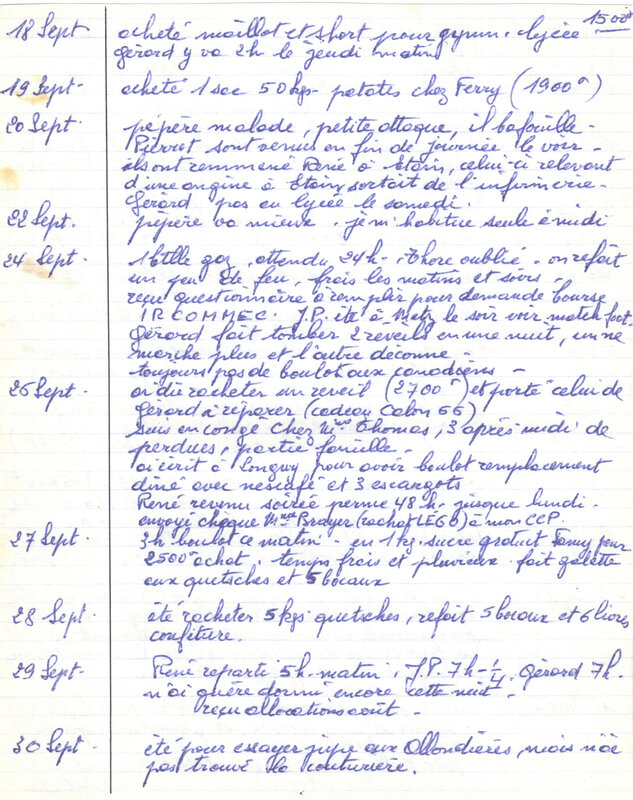 1500a
18 Sept acheté maillot et short pour gymn. lycée
Gérard y va 2h le jeudi matin
19 Sept - acheté 1 sac 50 kgs - patates chez Ferry (1900a)
20 Sept. pépère malade, petite attaque, il bafouille -
Pierrot sont venus en fin de journée le voir -
ils ont remmené René à Etain, celui-ci relevant
d'une angine à Etain, sortait de l'infirmerie -
Gérard pas eu lycée le samedi.
22 Sept. pépère va mieux. je m'habitue seule à midi
24 Sept. 1 btlle gaz, attendu 24h - Thore oublié - on refait
un peu de feu, frais les matins et soirs -
reçu questionnaire à remplir pour demande bourse
IRCOMMEC. J.P. été à Metz le soir voir match foot -
Gérard fait tomber 2 reveils en une nuit, un ne
marche plus et l'autre déconne -
toujours pas de boulot aux canadiens -
26 Sept - ai dû racheter un reveil (2700a) et porté celui de
Gérard à réparer (cadeau Calon 66)
suis en congé chez Mme Thomas, 3 après midi de
perdues, partie famille -
ai écrit à Longwy pour avoir boulot remplacement
diné avec nescafé et 3 escargots
René revenu soirée perme 48 h - jusque lundi -
envoyé chèque Mme Brayer (rachat LEGO) à mon CCP.
27 Sept. 3h boulot ce matin - eu 1 kg - sucre gratuit Famy pour
2500a achat. temps frais et pluvieux - fait galette
aux quetsches et 5 bocaux
28 Sept été racheter 5 kgs quetsches, refait 5 bocaux et 6 livres
confiture.
29 Sept René reparti 5h matin, J.P. 7h - 1/4, Gérard 7h -
n'ai guère dormi encore cette nuit -
reçu allocations août -
30 Sept - été pour essayer jupe aux Allondières, mais n'ai
pas trouvé la couturière.